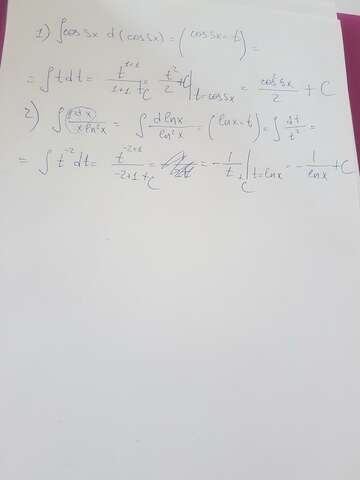 1) ∫cos5x d(cos5x) = (cos5x = t) =
= ∫tdt = t^(1+1)/(1+1) + C = t²/2 + C |t=cos5x = cos5x/2 + C
2) ∫dx/(x ln²x) = ∫d lnx/ln²x = (lnx = t) = ∫dt/t² =
= ∫t^(-2)dt = t^(-2+1)/(-2+1) + C = = -1/t + C |t=lnx = -1/lnx + C